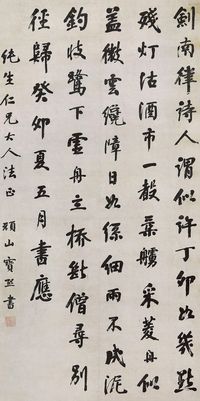 劍南律詩人謂似許丁卯如幾點
殘灯沽酒市一聲柔艣采菱舟似
盖微雲纔障日如絲細雨不成泥
釣收鷺下虛舟立橋斷僧尋別
徑歸癸卯夏五月書應
純生仁兄大人法正 頑山寶熙書